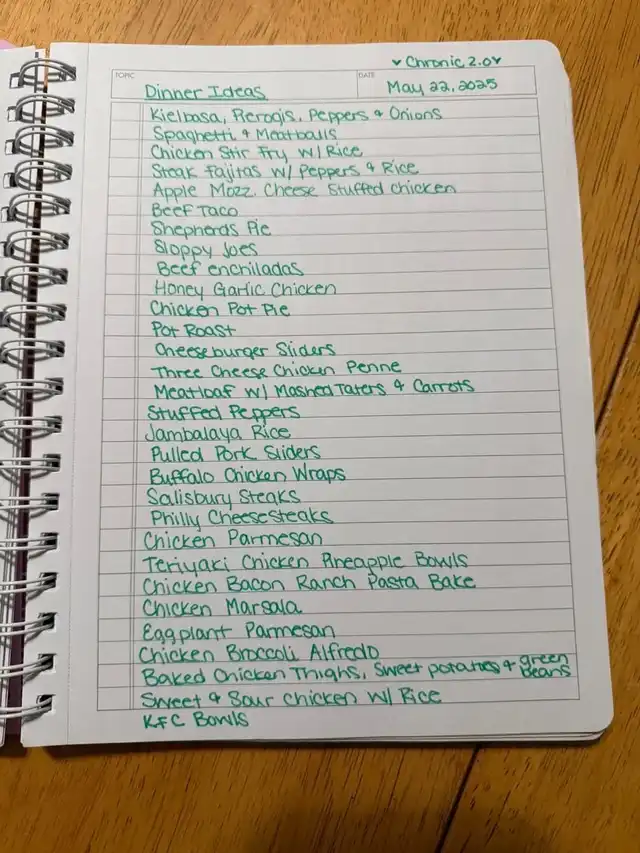 ♥ Chronic 2.0 ♥
TOPIC
DATE
Dinner Ideas
May 22, 2025
Kielbasa, Pierogis, Peppers & Onions
Spaghetti & Meatballs
Chicken Stir Fry w/ Rice
Steak Fajitas w/ Peppers & Rice
Apple Mozz Cheese Stuffed Chicken
Beef Taco
Shepherds Pie
Sloppy Joes
Beef enchiladas
Honey Garlic Chicken
Chicken Pot Pie
Pot Roast
Cheeseburger Sliders
Three Cheese Chicken Penne
Meatloaf w/ Mashed Taters & Carrots
Stuffed Peppers
Jambalaya Rice
Pulled Pork Sliders
Buffalo Chicken Wraps
Salisbury Steaks
Philly Cheesesteaks
Chicken Parmesan
Teriyaki Chicken Pineapple Bowls
Chicken Bacon Ranch Pasta Bake
Chicken Marsala
Eggplant Parmesan
Chicken Broccoli Alfredo
Baked Chicken Thighs, Sweet potatoes & green beans
Sweet & Sour Chicken w/ Rice
KFC Bowls